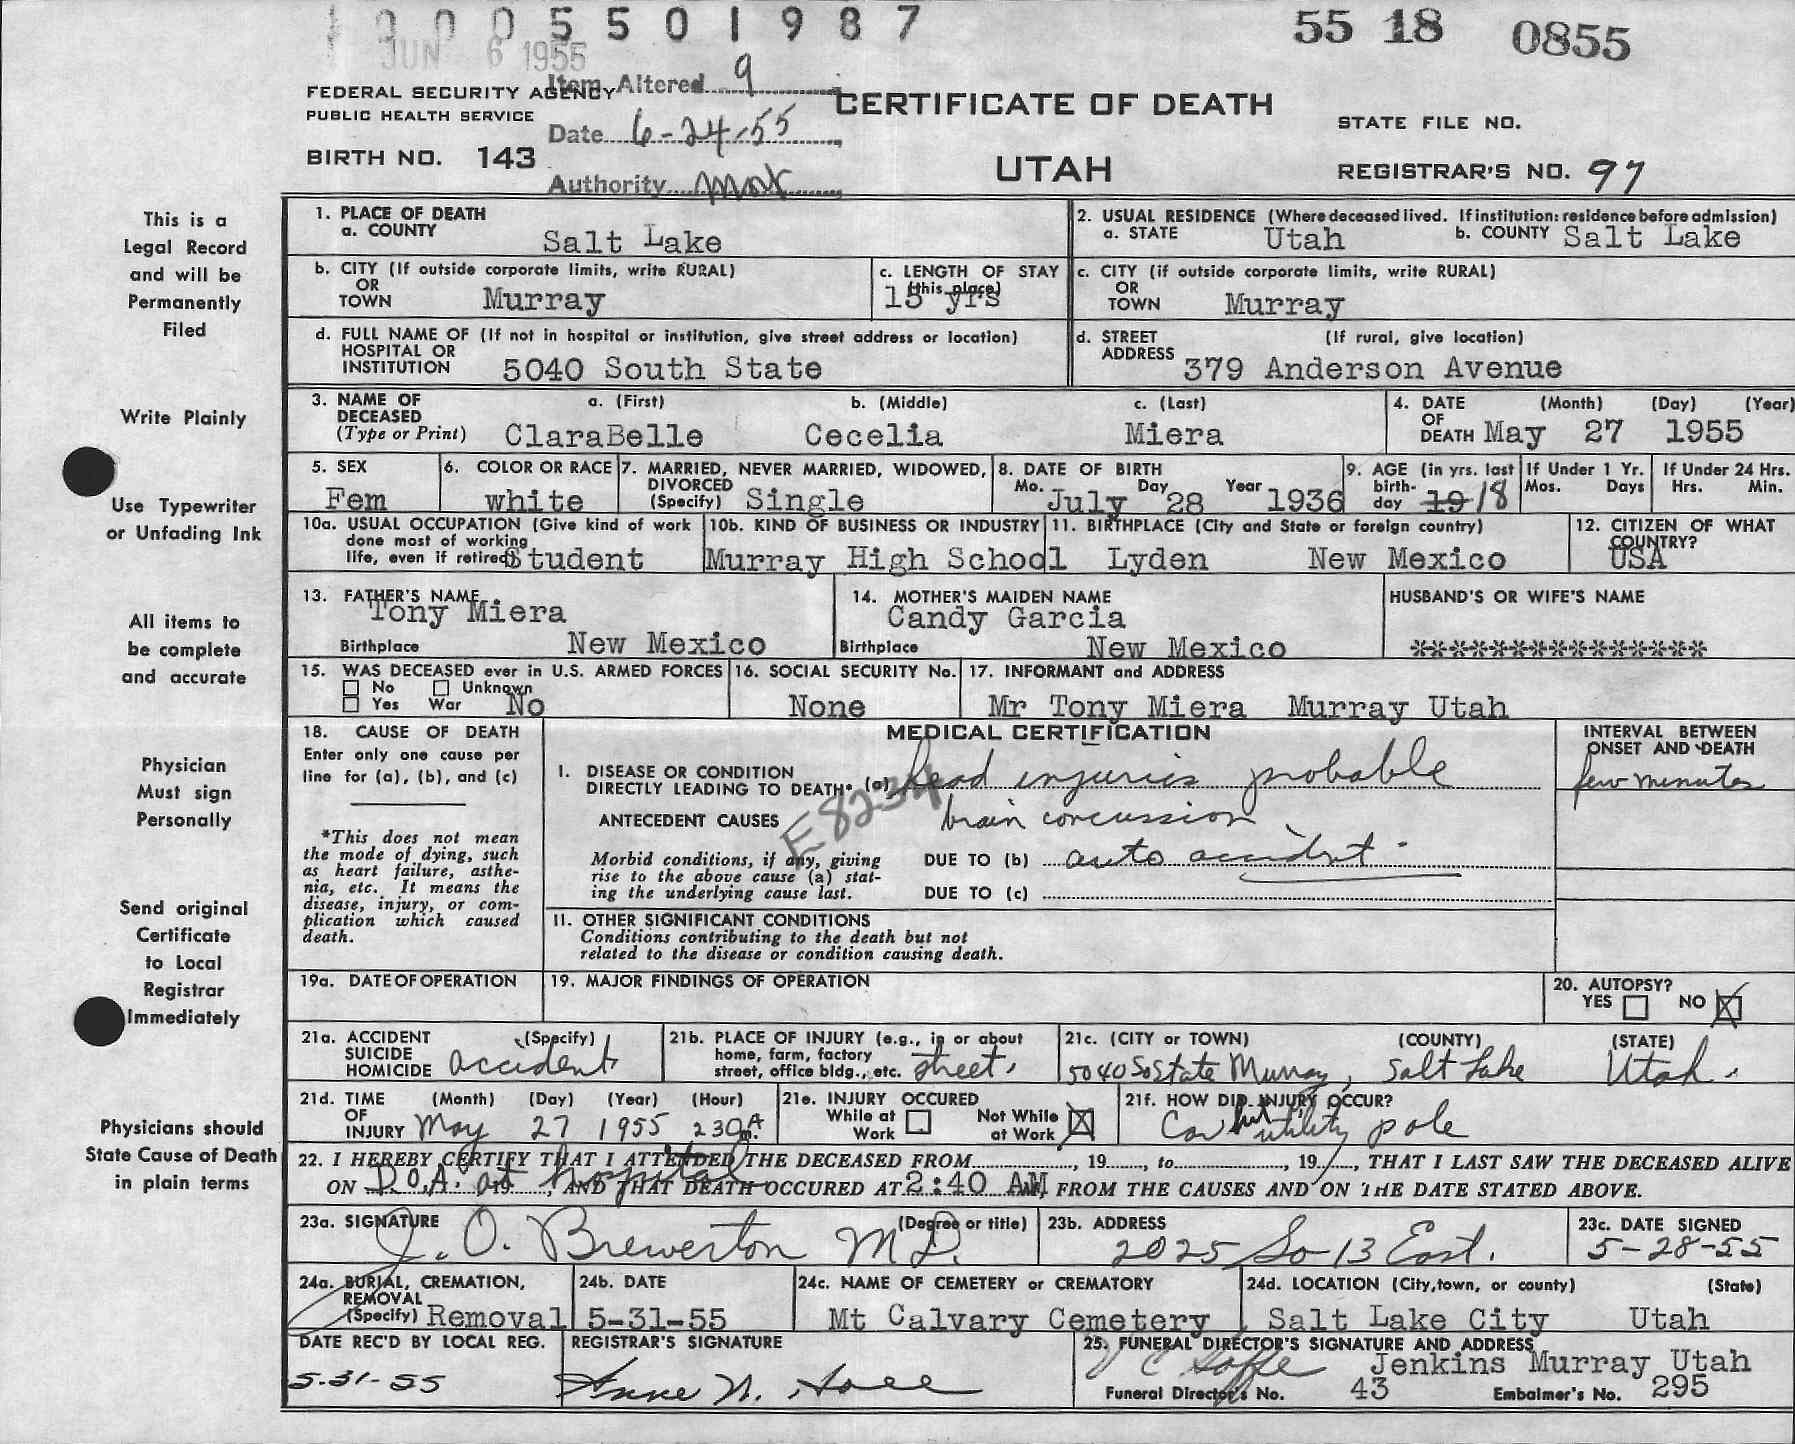 1900550 1987
55 18 0855
JUN 6 1955
Item Altered 9
FEDERAL SECURITY AGENCY
PUBLIC HEALTH SERVICE
Date 6-24-55
BIRTH NO. 143
Authority
CERTIFICATE OF DEATH
UTAH
STATE FILE NO.
REGISTRAR'S NO. 97
This is a
Legal Record
and will be
Permanently
Filed
Write Plainly
Use Typewriter
or Unfading Ink
All items to
be complete
and accurate
Physician
Must sign
Personally
Send original
Certificate
to Local
Registrar
Immediately
Physicians should
State Cause of Death
in plain terms
1. PLACE OF DEATH
a. COUNTY Salt Lake
2. USUAL RESIDENCE (Where deceased lived. If institution: residence before admission)
a. STATE Utah b. COUNTY Salt Lake
b. CITY (If outside corporate limits, write RURAL)
OR
TOWN Murray
c. LENGTH OF STAY
(this place)
15 yrs
c. CITY (if outside corporate limits, write RURAL)
OR
TOWN Murray
d. FULL NAME OF (If not in hospital or institution, give street address or location)
HOSPITAL OR
INSTITUTION 5040 South State
d. STREET (If rural, give location)
ADDRESS 379 Anderson Avenue
3. NAME OF a. (First) b. (Middle) c. (Last)
DECEASED
(Type or Print) ClaraBelle Cecelia Miera
4. DATE (Month) (Day) (Year)
OF
DEATH May 27 1955
5. SEX
Fem
6. COLOR OR RACE
white
7. MARRIED, NEVER MARRIED, WIDOWED,
DIVORCED
(Specify) Single
8. DATE OF BIRTH
Mo. Day Year
July 28 1936
9. AGE (in yrs. last
birth-
day 19 18
If Under 1 Yr.
Mos. Days
If Under 24 Hrs.
Hrs. Min.
10a. USUAL OCCUPATION (Give kind of work
done most of working
life, even if retired) Student
10b. KIND OF BUSINESS OR INDUSTRY
Murray High School
11. BIRTHPLACE (City and State or foreign country)
Lyden New Mexico
12. CITIZEN OF WHAT
COUNTRY?
USA
13. FATHER'S NAME
Tony Miera
Birthplace New Mexico
14. MOTHER'S MAIDEN NAME
Candy Garcia
Birthplace New Mexico
HUSBAND'S OR WIFE'S NAME
***************
15. WAS DECEASED ever in U.S. ARMED FORCES
No Unknown
Yes War No
16. SOCIAL SECURITY No.
None
17. INFORMANT and ADDRESS
Mr Tony Miera Murray Utah
18. CAUSE OF DEATH
Enter only one cause per
line for (a), (b), and (c)
*This does not mean
the mode of dying, such
as heart failure, asthe-
nia, etc. It means the
disease, injury, or com-
plication which caused
death.
MEDICAL CERTIFICATION
I. DISEASE OR CONDITION
DIRECTLY LEADING TO DEATH* (a) head injuries probable
ANTECEDENT CAUSES brain concussion
E8234
Morbid conditions, if any, giving
rise to the above cause (a) stat-
ing the underlying cause last.
DUE TO (b) auto accident
DUE TO (c)
INTERVAL BETWEEN
ONSET AND DEATH
few minutes
II. OTHER SIGNIFICANT CONDITIONS
Conditions contributing to the death but not
related to the disease or condition causing death.
19a. DATE OF OPERATION
19. MAJOR FINDINGS OF OPERATION
20. AUTOPSY?
YES NO X
21a. ACCIDENT (Specify)
SUICIDE
HOMICIDE accident
21b. PLACE OF INJURY (e.g., in or about
home, farm, factory
street, office bldg., etc. street.
21c. (CITY or TOWN) (COUNTY) (STATE)
5040 So State Murray, Salt Lake Utah.
21d. TIME (Month) (Day) (Year) (Hour)
OF
INJURY May 27 1955 230 A m.
21e. INJURY OCCURED
While at Work Not While at Work X
21f. HOW DID INJURY OCCUR?
Car hit utility pole
22. I HEREBY CERTIFY THAT I ATTENDED THE DECEASED FROM , 19 , to , 19 , THAT I LAST SAW THE DECEASED ALIVE
ON D.O.A. at hospital 19 , AND THAT DEATH OCCURED AT 2:40 AM FROM THE CAUSES AND ON THE DATE STATED ABOVE.
23a. SIGNATURE (Degree or title)
J. O. Brewerton M.D.
23b. ADDRESS
2025 So 13 East.
23c. DATE SIGNED
5-28-55
24a. BURIAL, CREMATION,
REMOVAL
(Specify) Removal
24b. DATE
5-31-55
24c. NAME OF CEMETERY or CREMATORY
Mt Calvary Cemetery
24d. LOCATION (City, town, or county) (State)
Salt Lake City Utah
DATE REC'D BY LOCAL REG.
5-31-55
REGISTRAR'S SIGNATURE
Anne N.
25. FUNERAL DIRECTOR'S SIGNATURE AND ADDRESS
Jenkins Murray Utah
Funeral Director's No. 43 Embalmer's No. 295